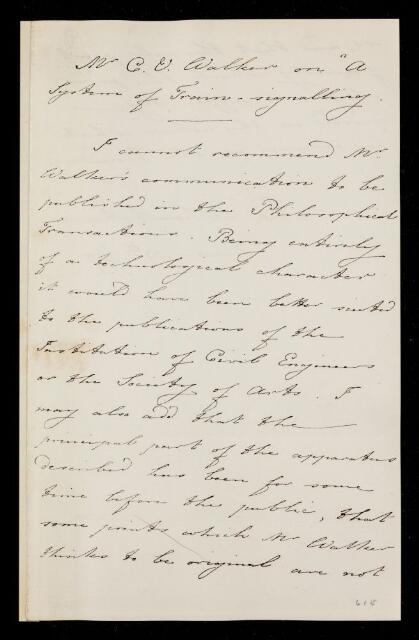 Mr C. V. Walker on "A
System of Train-signalling.
I cannot recommend Mr
Walker's communication to be
published in the Philosophical
Transactions. Being entirely
of a technological character
it would have been better suited
to the publications of the
Institution of Civil Engineers
or the Society of Arts. I
may also add that the
principal part of the apparatus
described has been for some
time before the public, that
some points which Mr Walker
thinks to be original are not